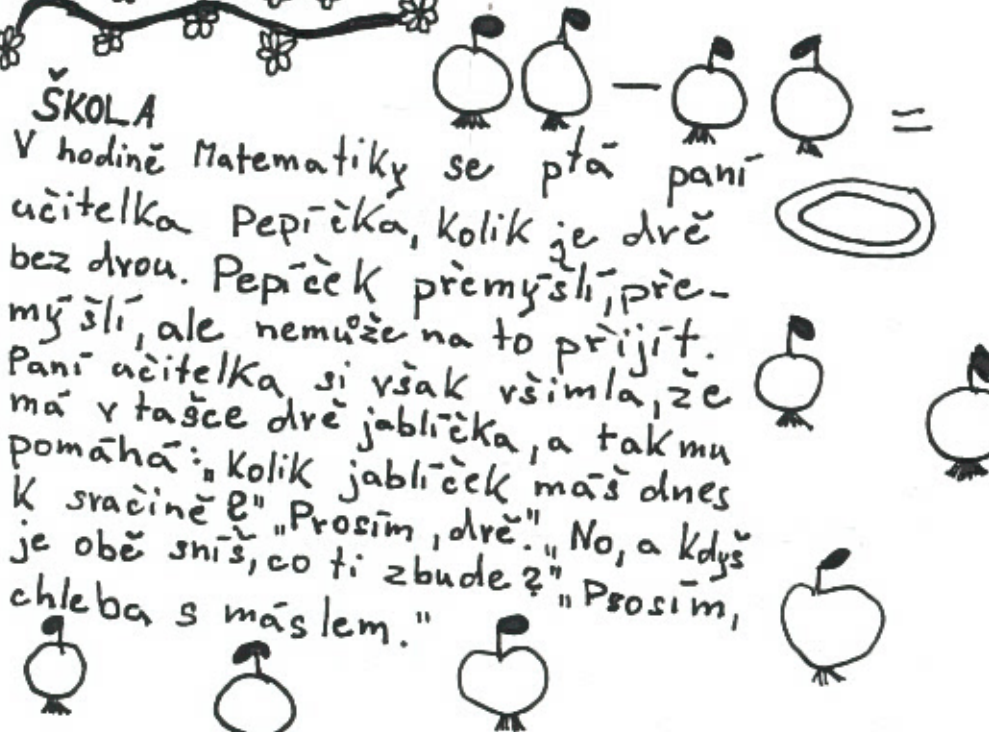 ŠKOLA
V hodině Matematiky se ptá paní
učitelka Pepíčka, kolik je dvě
bez dvou. Pepíček přemýšlí, pře-
mýšlí, ale nemůže na to přijít.
Paní učitelka si však všimla, že
má v tašce dvě jablíčka, a tak mu
pomáhá: „Kolik jablíček máš dnes
k svačině?" „Prosím, dvě." „No, a kdyš
je obě sníš, co ti zbude?" „Prosím,
chleba s máslem."